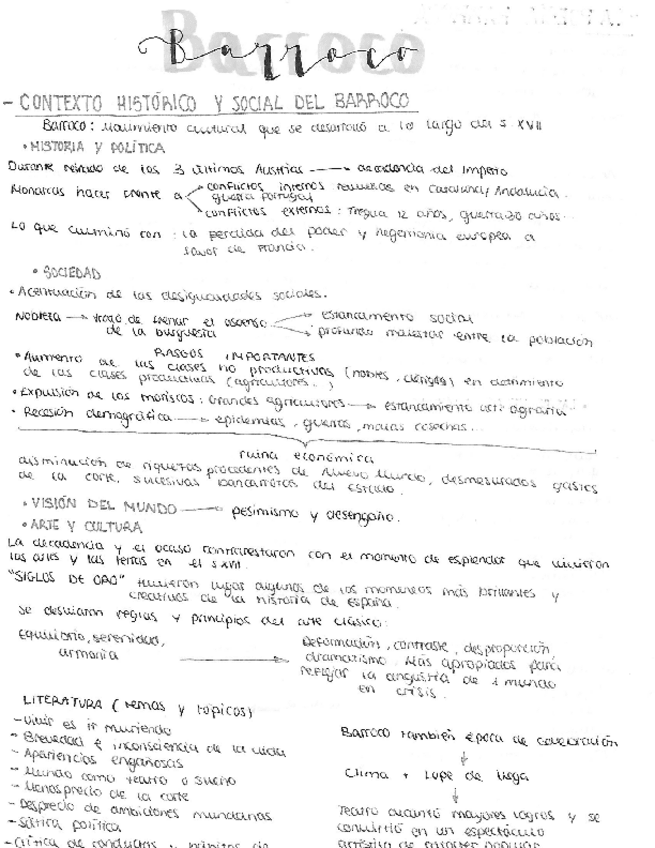 Barroco
- CONTEXTO HISTÓRICO Y SOCIAL DEL BARROCO
Barroco: Movimiento cultural que se desarrolló a lo largo del s. XVII
• HISTORIA Y POLÍTICA
Durante reinado de los 3 últimos Austrias → decadencia del Imperio
Monarcas hacer frente a
conflictos internos revueltas en Cataluña/Andalucía.
guerra Portugal
conflictos externos: Tregua 12 años, guerra 30 años.
Lo que culminó con: la perdida del poder y hegemonía europea a
favor de Francia.
• SOCIEDAD
• Acentuación de las desigualdades sociales.
Nobleza → trató de frenar el ascenso
de la burguesía
→ estancamiento social
→ profundo malestar entre la población
RASGOS IMPORTANTES
• Aumento de las clases no productivas (nobles, clérigos) en detrimento
de las clases productivas (agricultores..)
• Expulsión de los moriscos: Grandes agricultores → estancamiento act. agraria
• Recesión demográfica → epidemias, guerras, malas cosechas...
ruina económica
disminución de riquezas procedentes de Nuevo Mundo, desmesurados gastos
de la corte, sucesivas bancarrotas del Estado.
• VISIÓN DEL MUNDO → pesimismo y desengaño.
• ARTE Y CULTURA
La decadencia y el ocaso contrarestaron con el momento de esplendor que vivieron
las artes y las letras en el s XVII
"SIGLOS DE ORO" tuvieron lugar algunos de los momentos más brillantes y
creativos de la historia de España.
Se desviaron reglas y principios del arte clásico:
Equilibrio, serenidad,
armonía
→
Deformación, contraste, desproporción
dramatismo. Más apropiados para
reflejar la angustia de 1 mundo
en crisis.
LITERATURA (temas y tópicos)
- Vivir es ir muriendo
- Brevedad e inconsciencia de la vida
- Apariencias engañosas
- Mundo como teatro o sueño
- Menosprecio de la corte
- Desprecio de ambiciones mundanas
- Sátira política
- Crítica de conductas y hábitos de
Barroco también época de celebración
↓
Clima + Lope de Vega
↓
Teatro alcanzó mayores logros y se
convirtió en un espectáculo
artístico de carácter popular